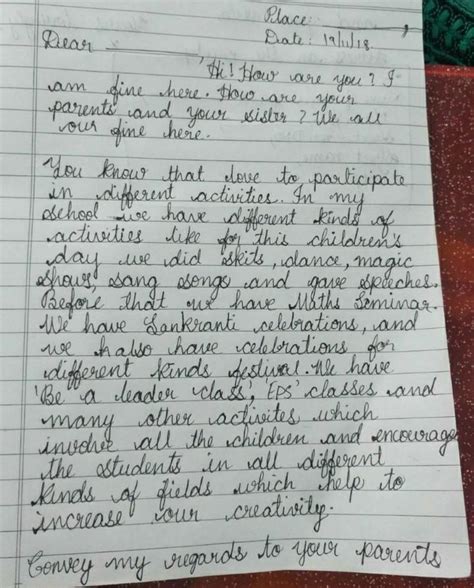 Place ______,
Date: 19/11/18.
Dear ______
'Hi! How are you? I
am fine here. How are your
parents and your sister? We all
our fine here.
You know that love to participate
in different activities. In my
school we have different kinds of
activities like for this children's
day we did skits, dance, magic
shows, sang songs and gave speeches.
Before that we have Maths Seminar.
We have Sankranti celebrations, and
we also have celebrations for
different kinds festival. We have
'Be a leader class', 'EPS' classes and
many other activites which
involve all the children and encourage
the students in all different
kinds of fields which help to
increase our creativity.
Convey my regards to your parents